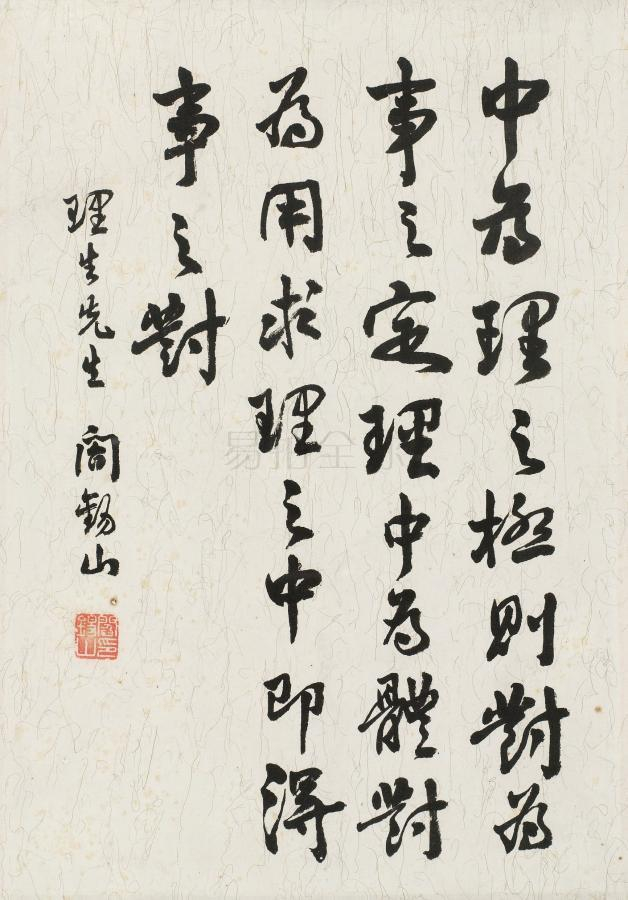 中為理之極則對為
事之定理中為體對
為用求理之中即得
事之對
理生先生 閻錫山